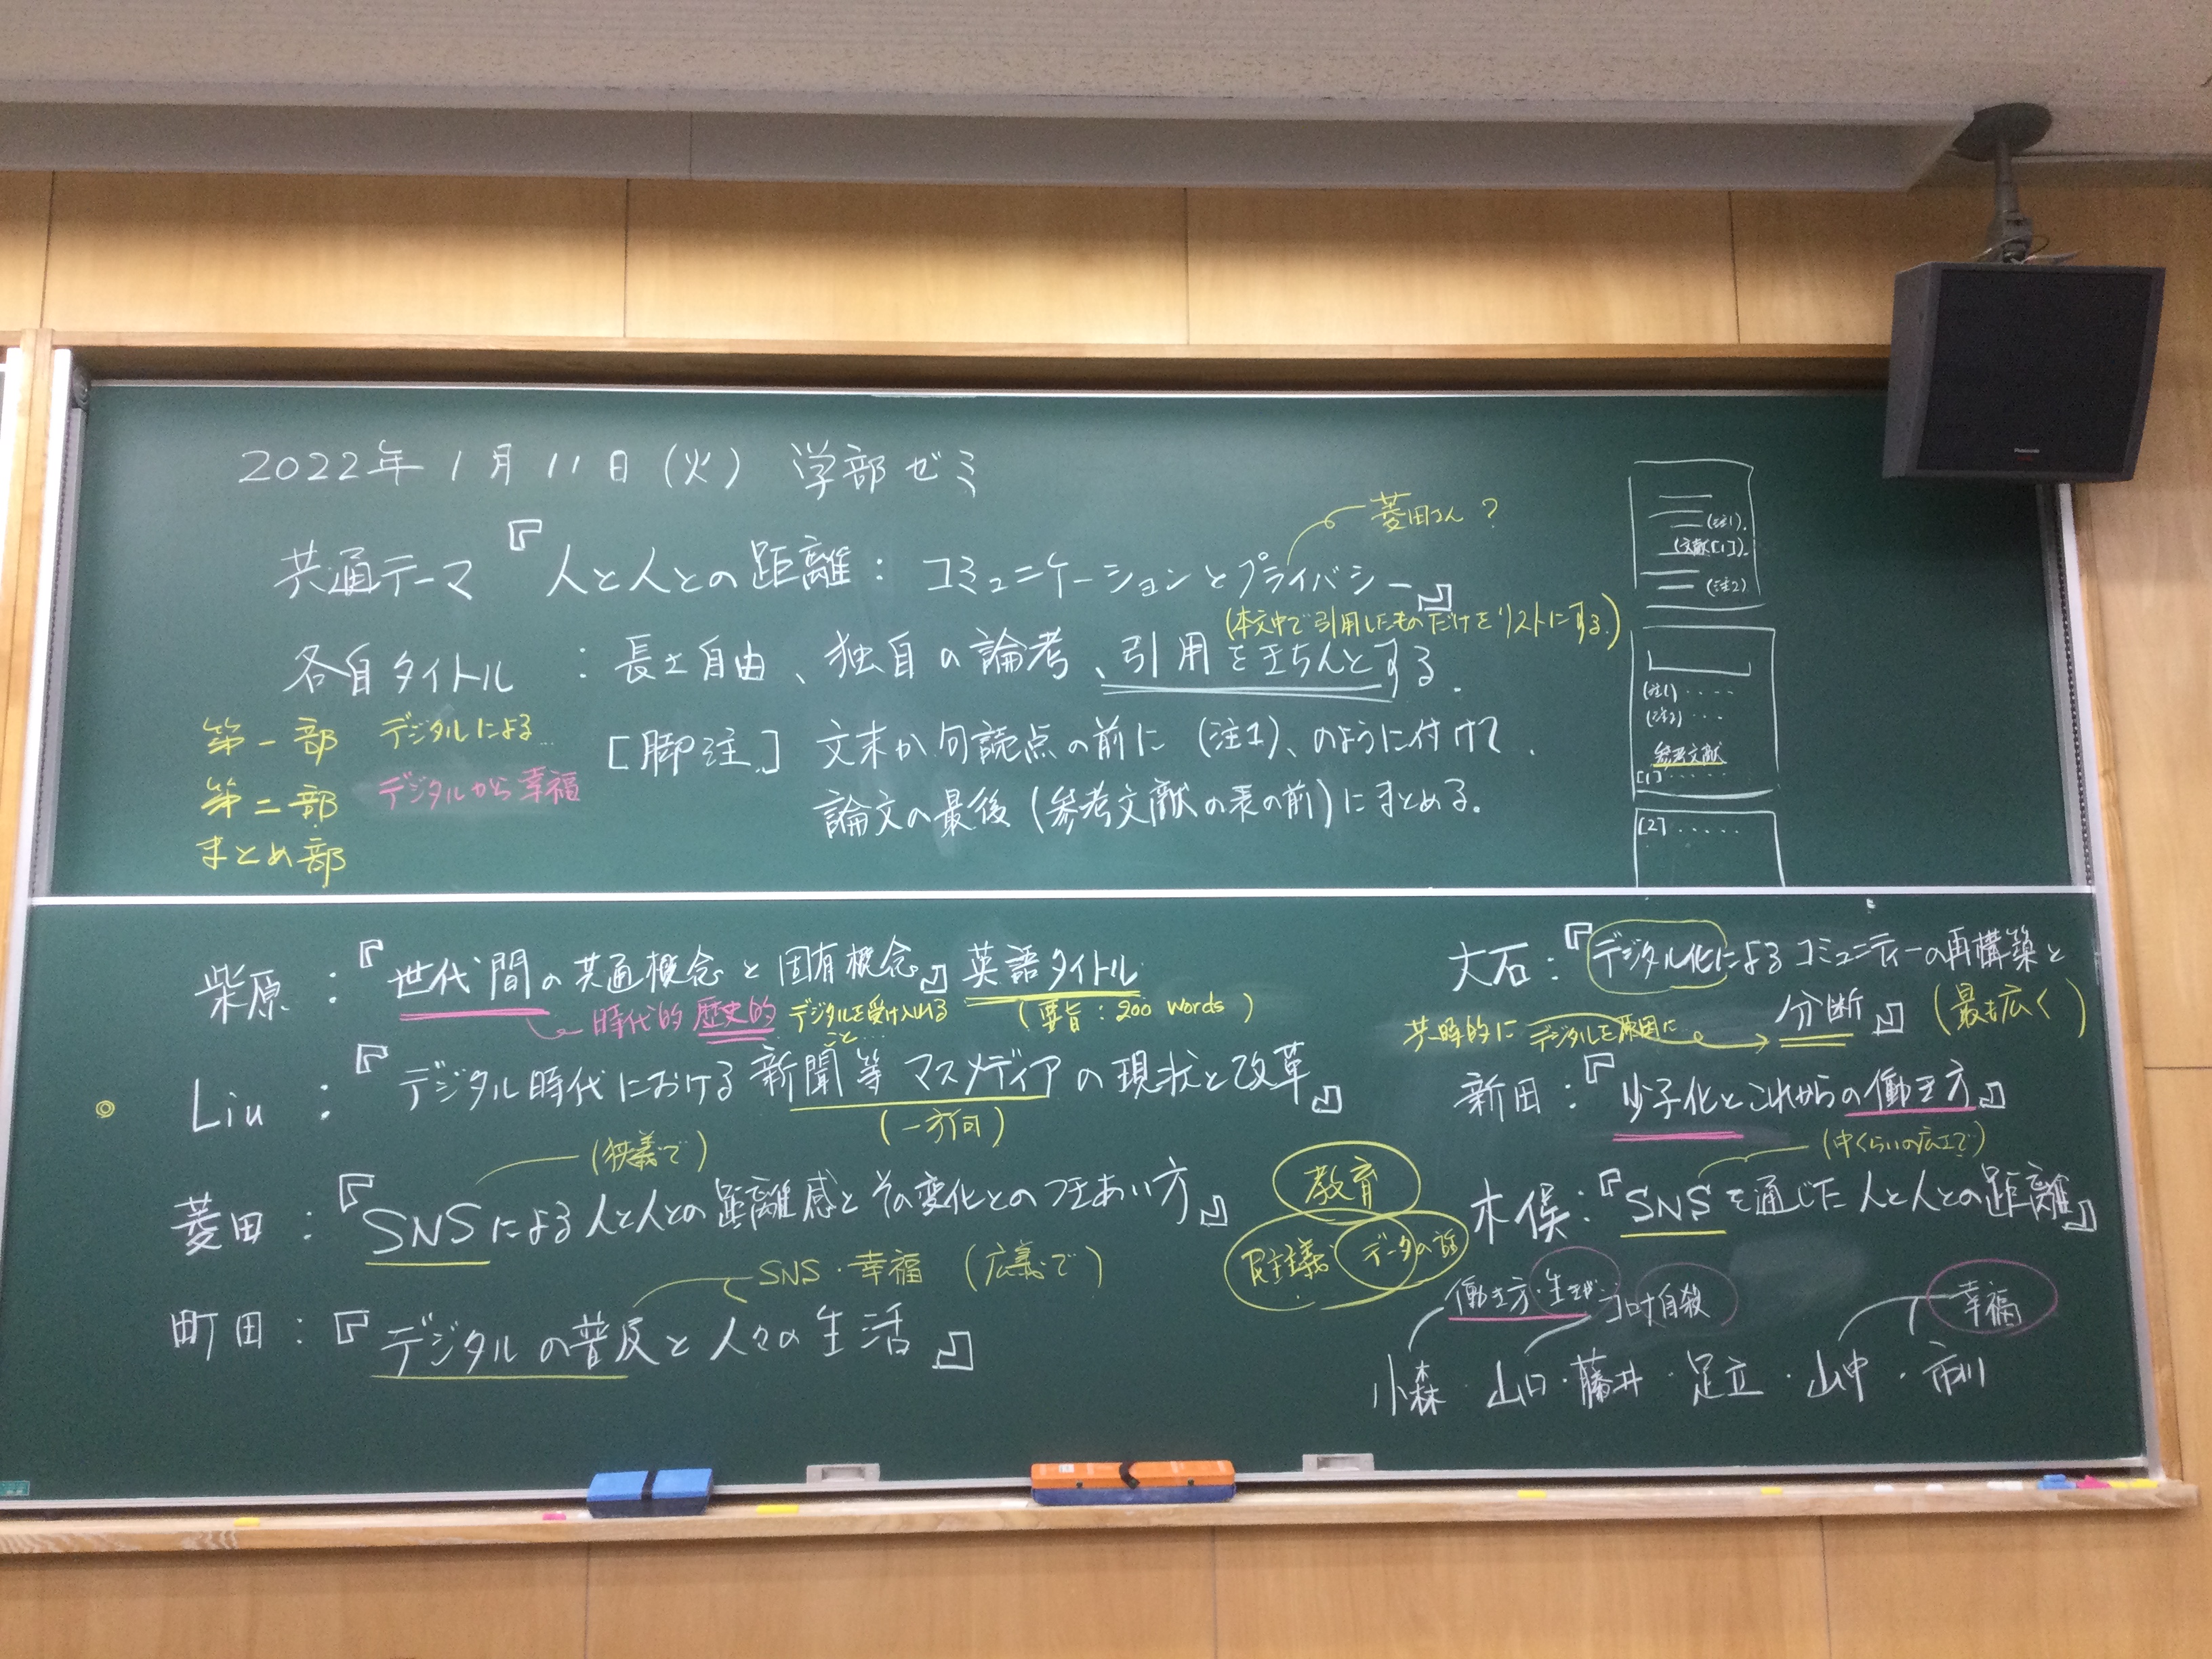 2022年1月11日(火) 学部ゼミ
菱田さん?
共通テーマ『人と人との距離:コミュニケーションとプライバシー』
(本文中で引用したものだけをリストにする。)
各自タイトル:長さ自由、独自の論考、引用をきちんとする.
第一部 デジタルによる...
[脚注] 文末か句読点の前に(注1)、のように付けて.
第二部 デジタルから幸福
論文の最後(参考文献の表の前)にまとめる.
まとめ部
(注1).
(文献[1]).
(注2)
(注1)....
(注2)...
参考文献
[1].....
[2].....
柴原:『世代間の共通概念と固有概念』英語タイトル
時代的 歴史的 デジタルを受け入れること... (要旨:200 words)
Liu:『デジタル時代における新聞等マスメディアの現状と改革』
(一方向)
(狭義で)
菱田:『SNSによる人と人との距離感とその変化とのつきあい方』
SNS・幸福 (広義で)
町田:『デジタルの普及と人々の生活』
教育
民主主義 データの話
大石:『デジタル化によるコミュニティーの再構築と
分断』(最も広く)
共時的に デジタルを原因に
新田:『少子化とこれからの働き方』
(中くらいの広さで)
木俣:『SNSを通じた人と人との距離』
働き方・生きがい コロナ自殺 幸福
小森・山口・藤井・足立・山中・市川
Panasonic